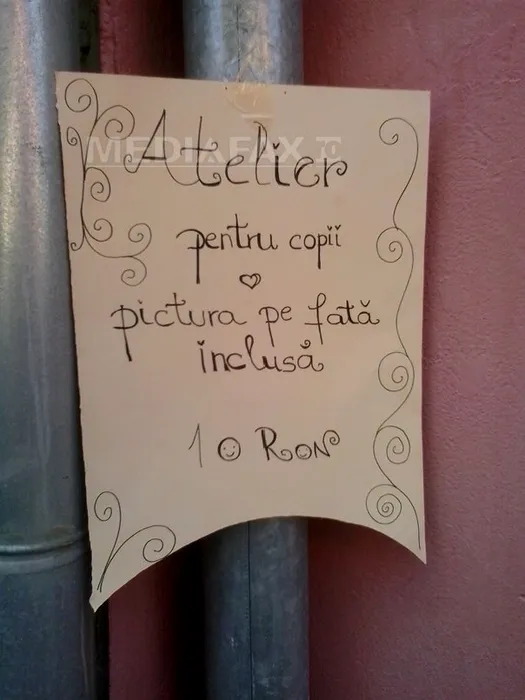 MEDIAFAX
Atelier
pentru copii
pictura pe fată
inclusă
10 RON